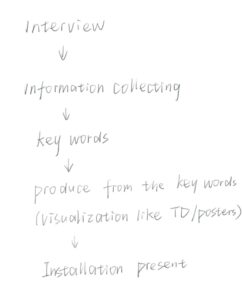 Interview
↓
Information collecting
↓
key words
↓
produce from the key words
(visualization like TD/posters)
↓
Installation present